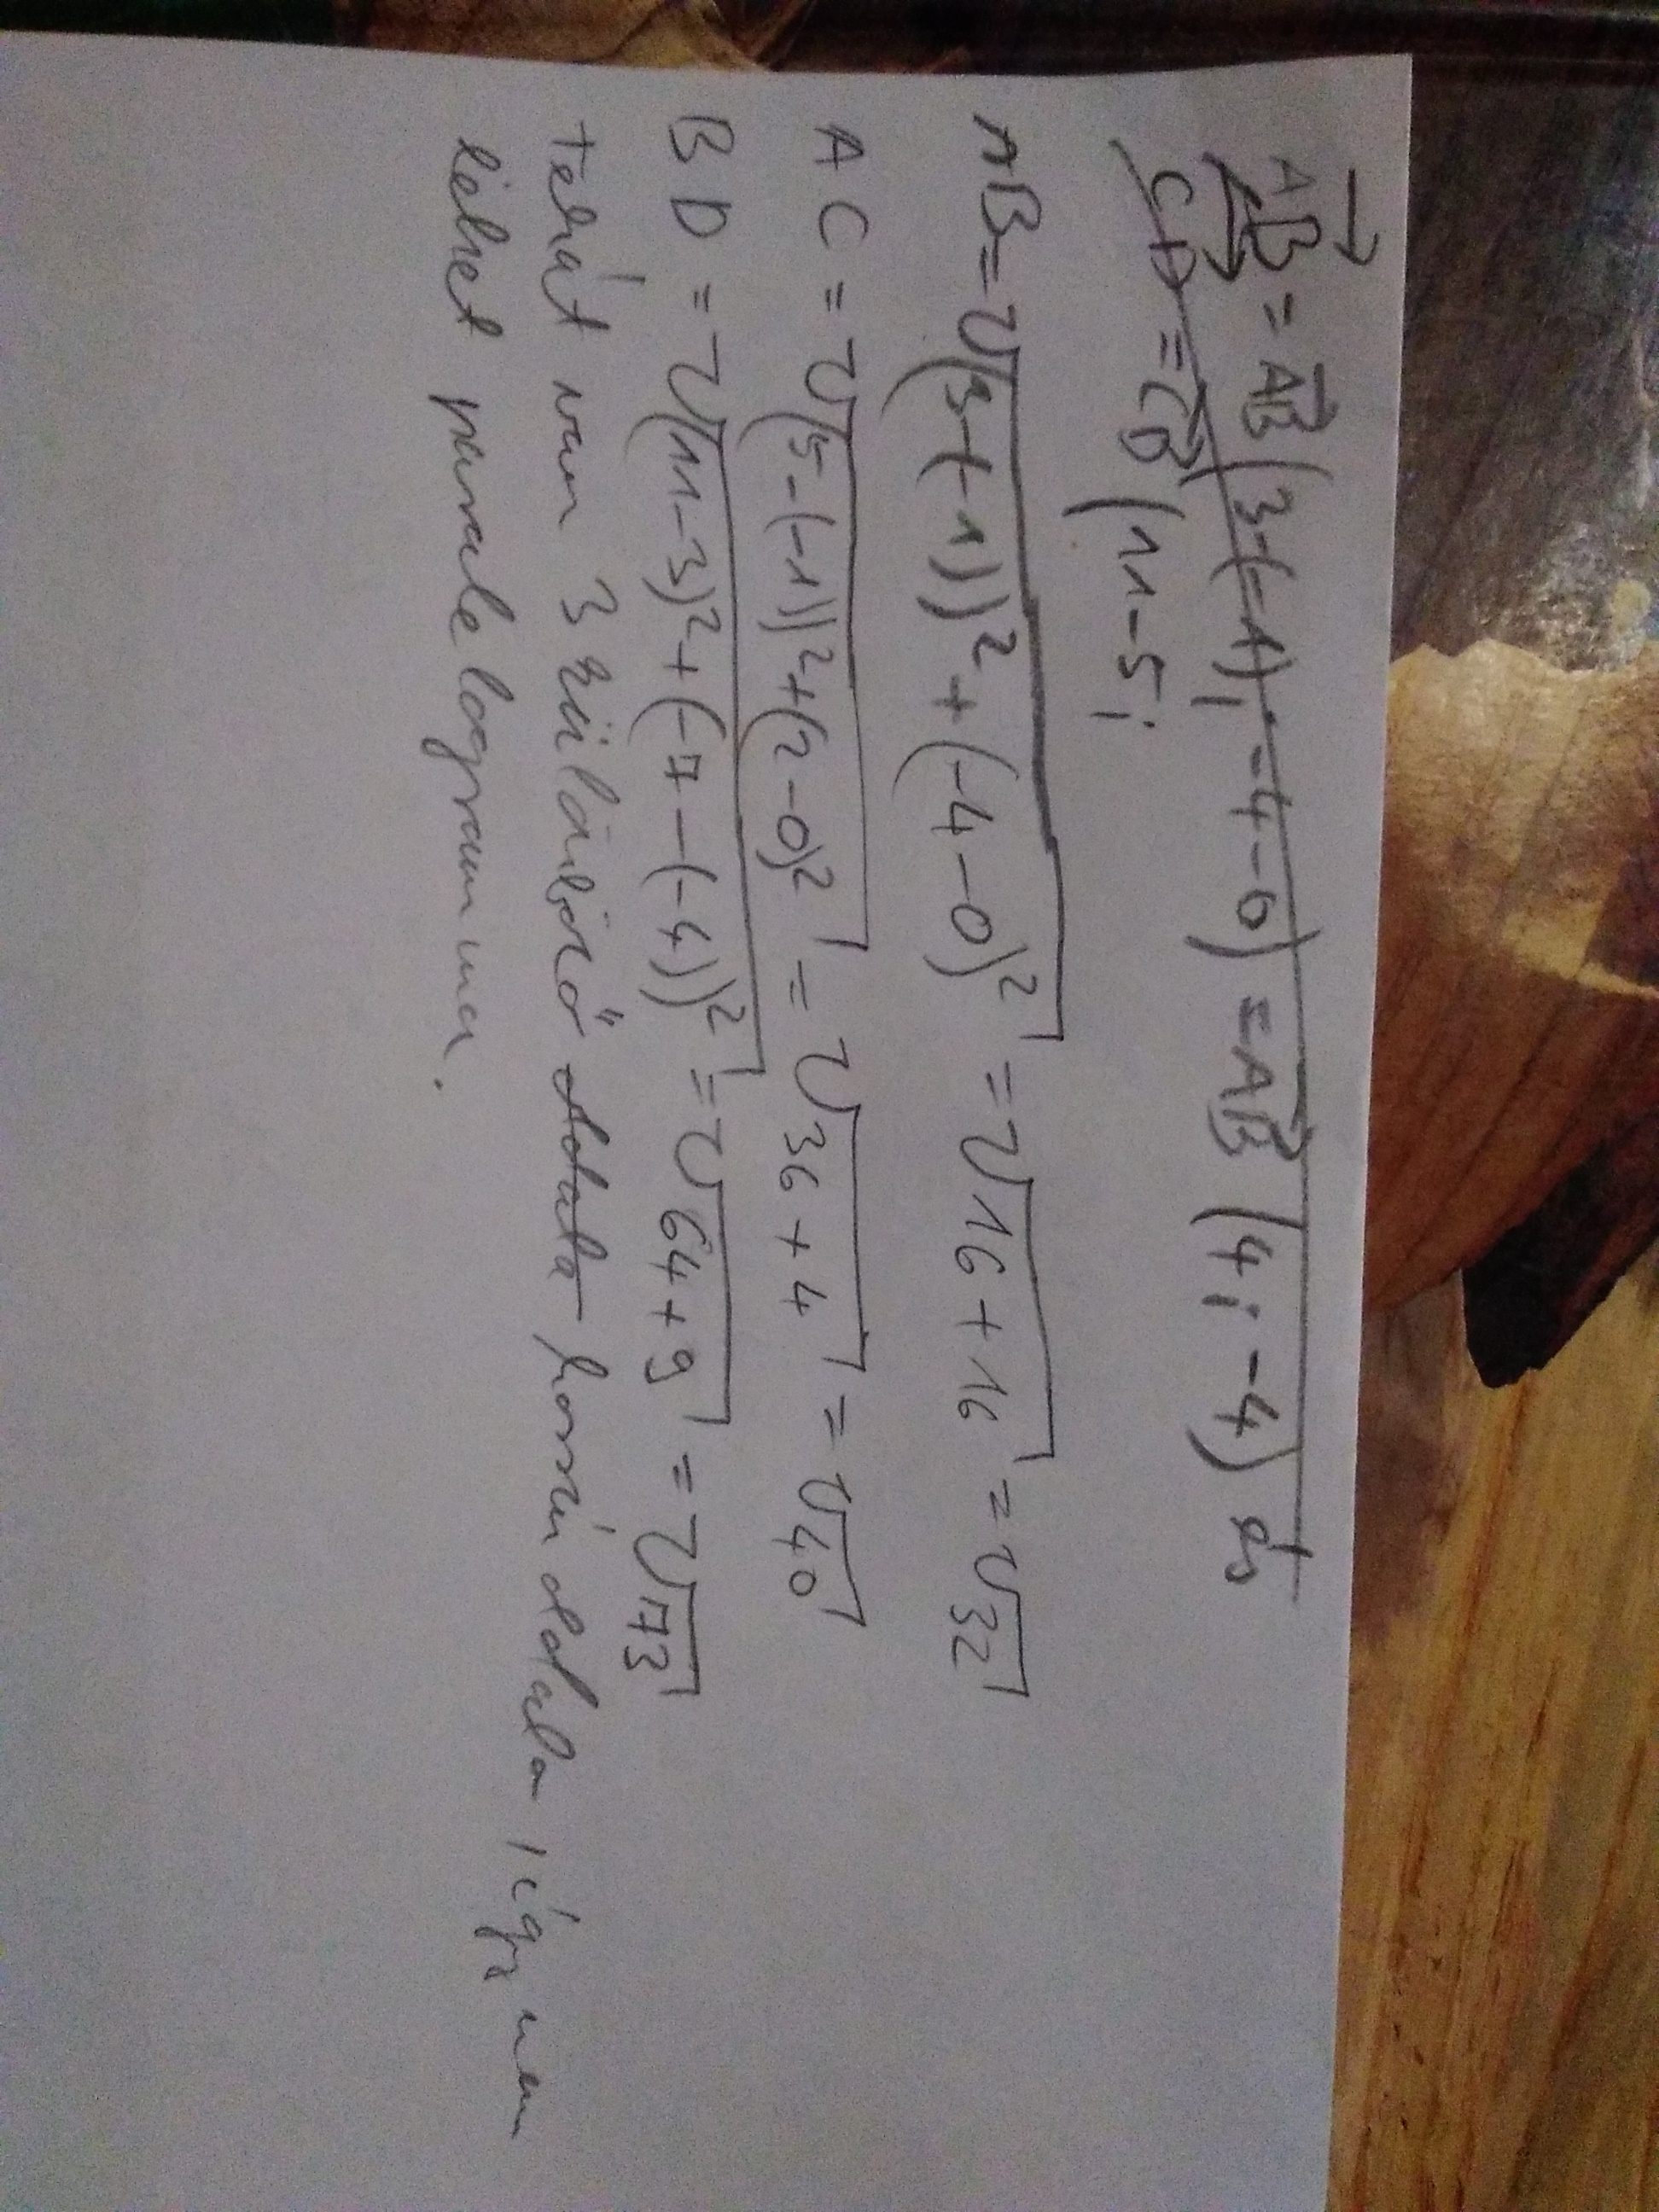 AB = AB (3-(-1); -4-0) = AB (4; -4) és
CD = CD (11-5;
AB = √(3-(-1))² + (-4-0)² = √16+16 = √32
AC = √(5-(-1))² + (2-0)² = √36+4 = √40
BD = √(11-3)² + (-7-(-4))² = √64+9 = √73
tehát van 3 különböző oldala hosszú oldala, így nem
lehet paralelogramma.